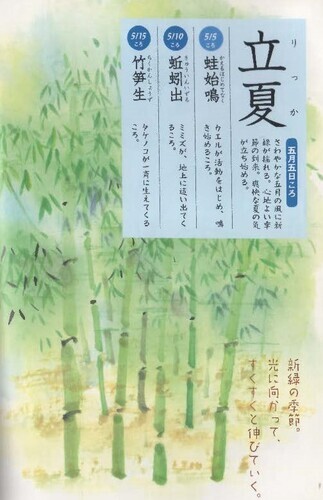 りっか
立夏
五月五日ころ
さわやかな五月の風に新
緑が揺れる、心地よい季
節の到来。爽快な夏の気
が立ち始める。
5/5
ころ
かわずはじめてなく
蛙始鳴
カエルが活動をはじめ、鳴
き始めるころ。
5/10
ころ
きゅういんいずる
蚯蚓出
ミミズが、地上に這い出てく
るころ。
5/15
ころ
たくかんしょうず
竹笋生
タケノコが一斉に生えてくる
ころ。
新緑の季節。
光に向かって、
すくすくと伸びていく。